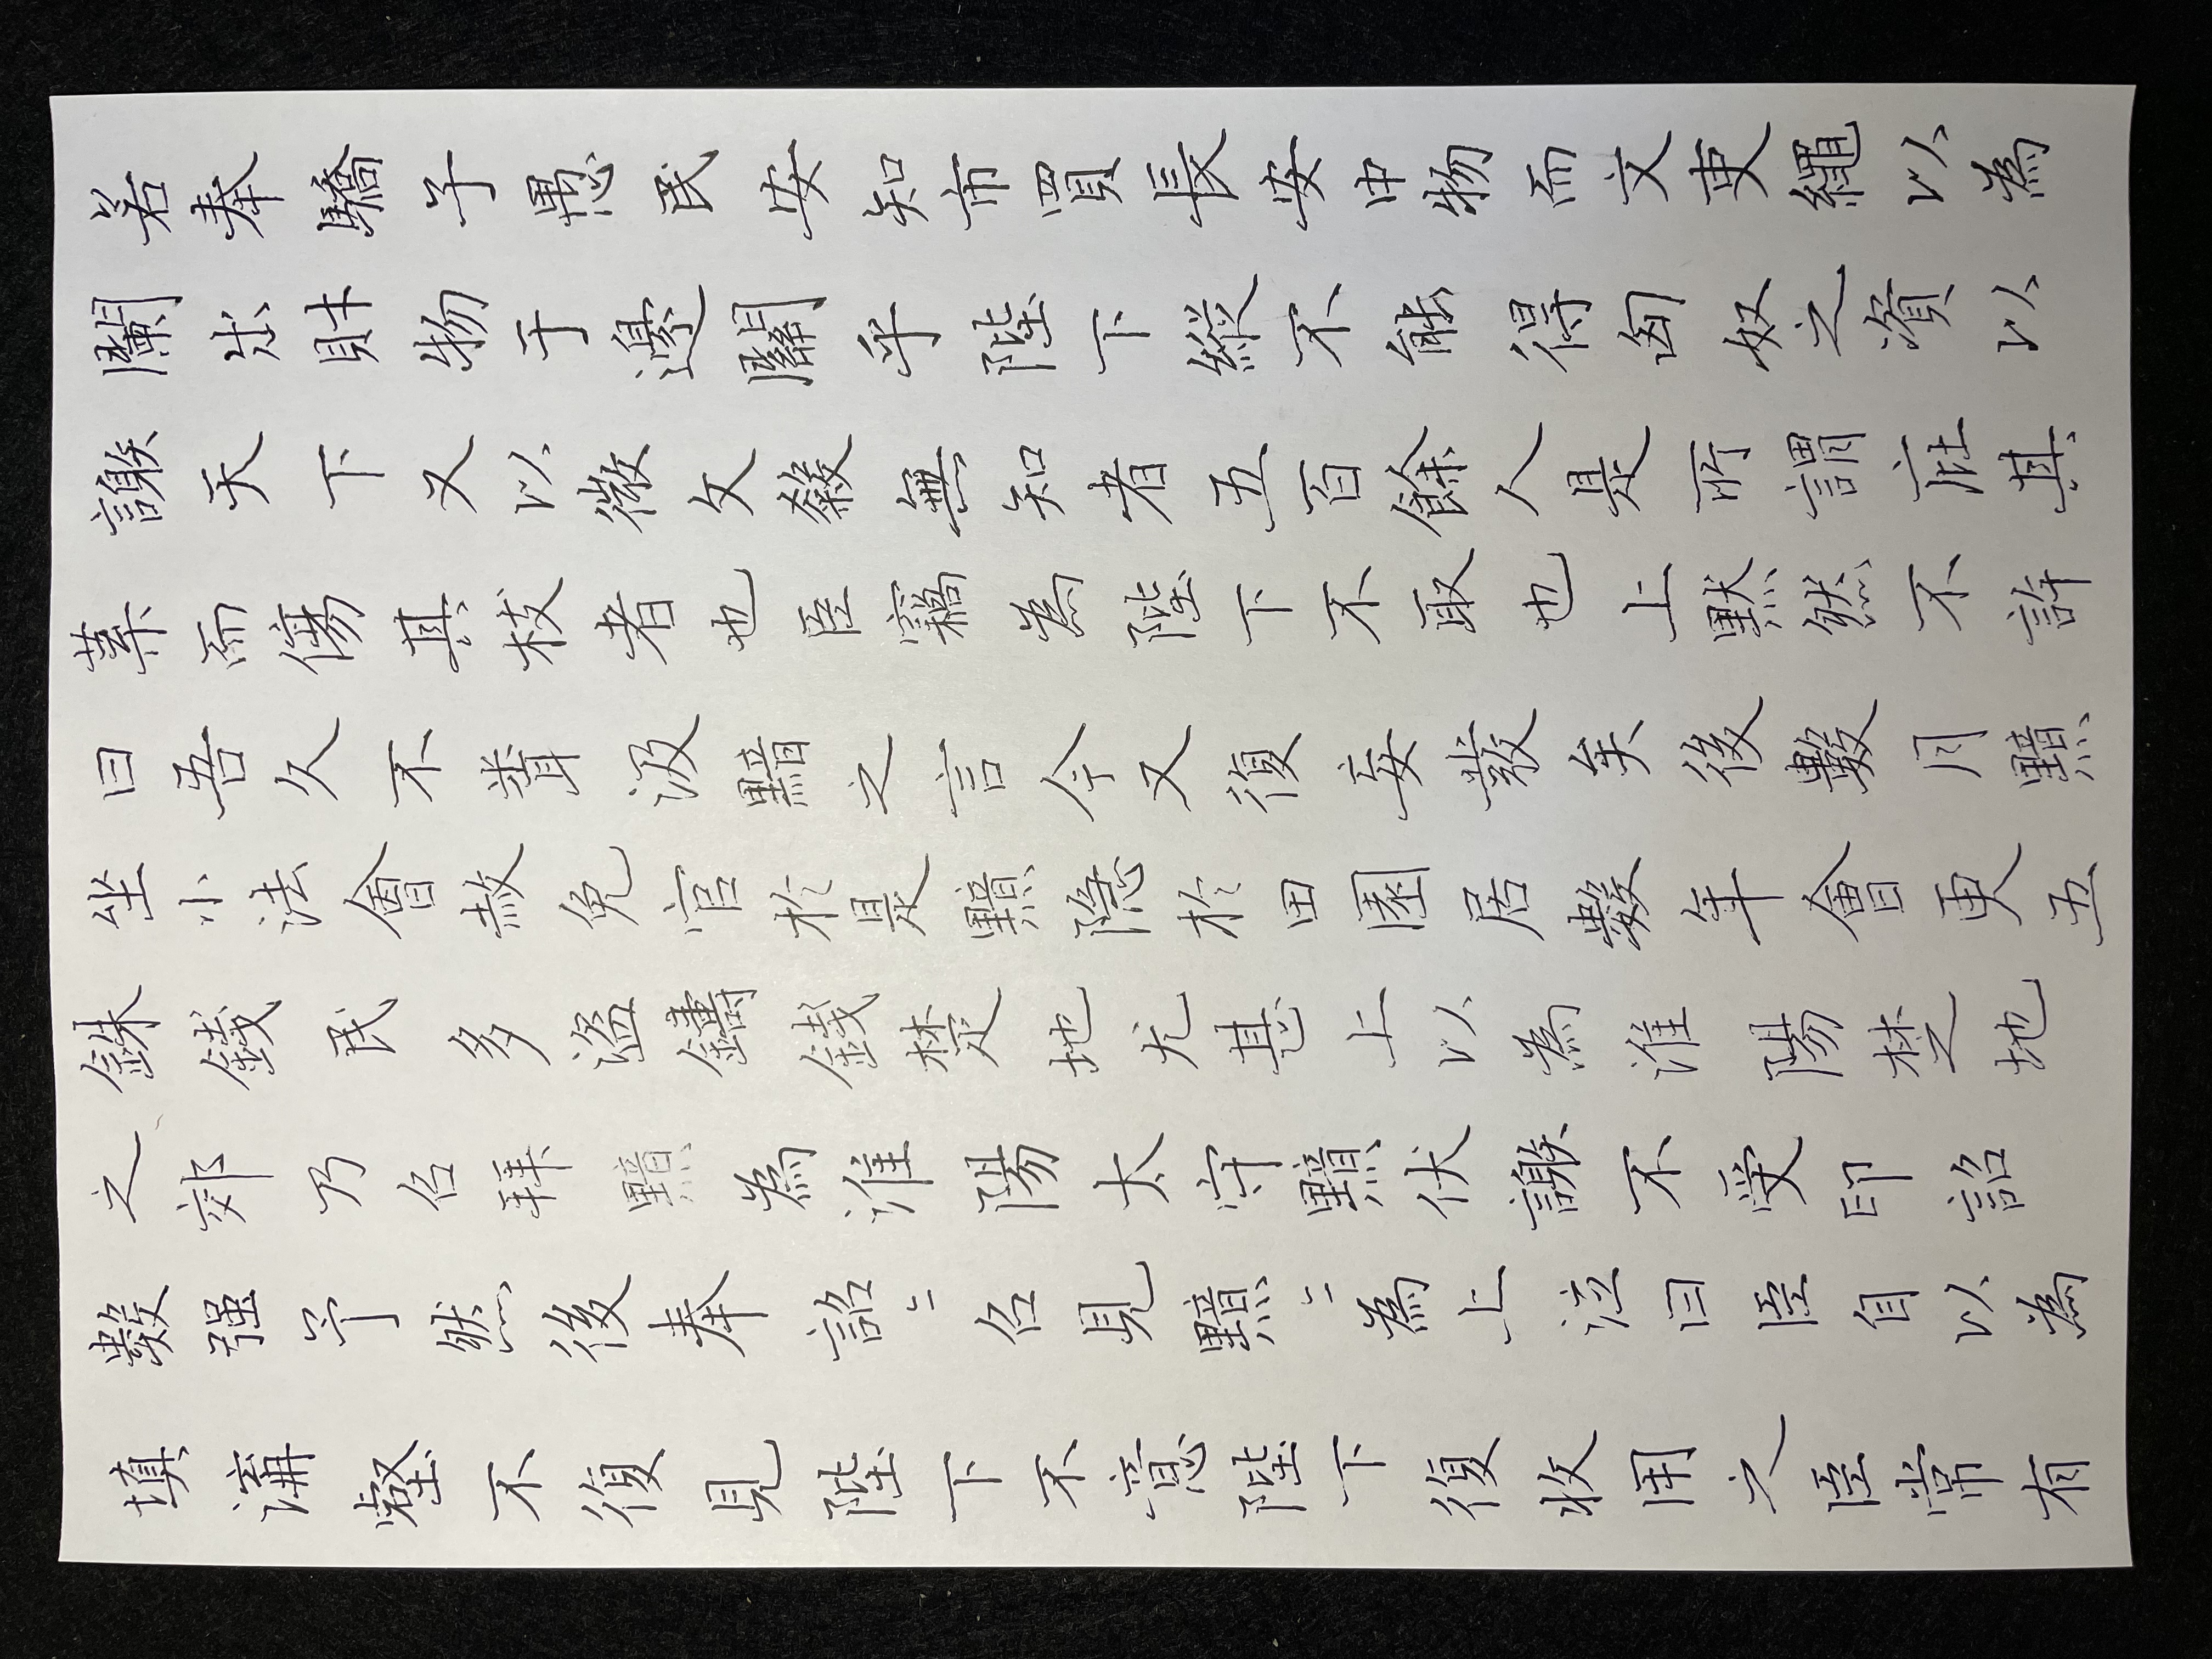 若奉驕子愚民安知市買長安中物而文吏繩以為
闌出財物于邊關乎陛下縱不能得匈奴之資以
謝天下又以微文殺無知者五百餘人是所謂庇其
葉而傷其枝者也臣竊為陛下不取也上默然不許
曰吾久不聞汲黯之言今又復妄發矣後數月黯
坐小法會赦免官於是黯隱於田園居數年會更五
銖錢民多盜鑄錢楚地尤甚上以為淮陽楚地
之郊乃召拜黯為淮陽太守黯伏謝不受印詔
數强予然後奉詔〻召見黯〻為上泣曰臣自以為
填溝壑不復見陛下不意陛下復收用之臣常有